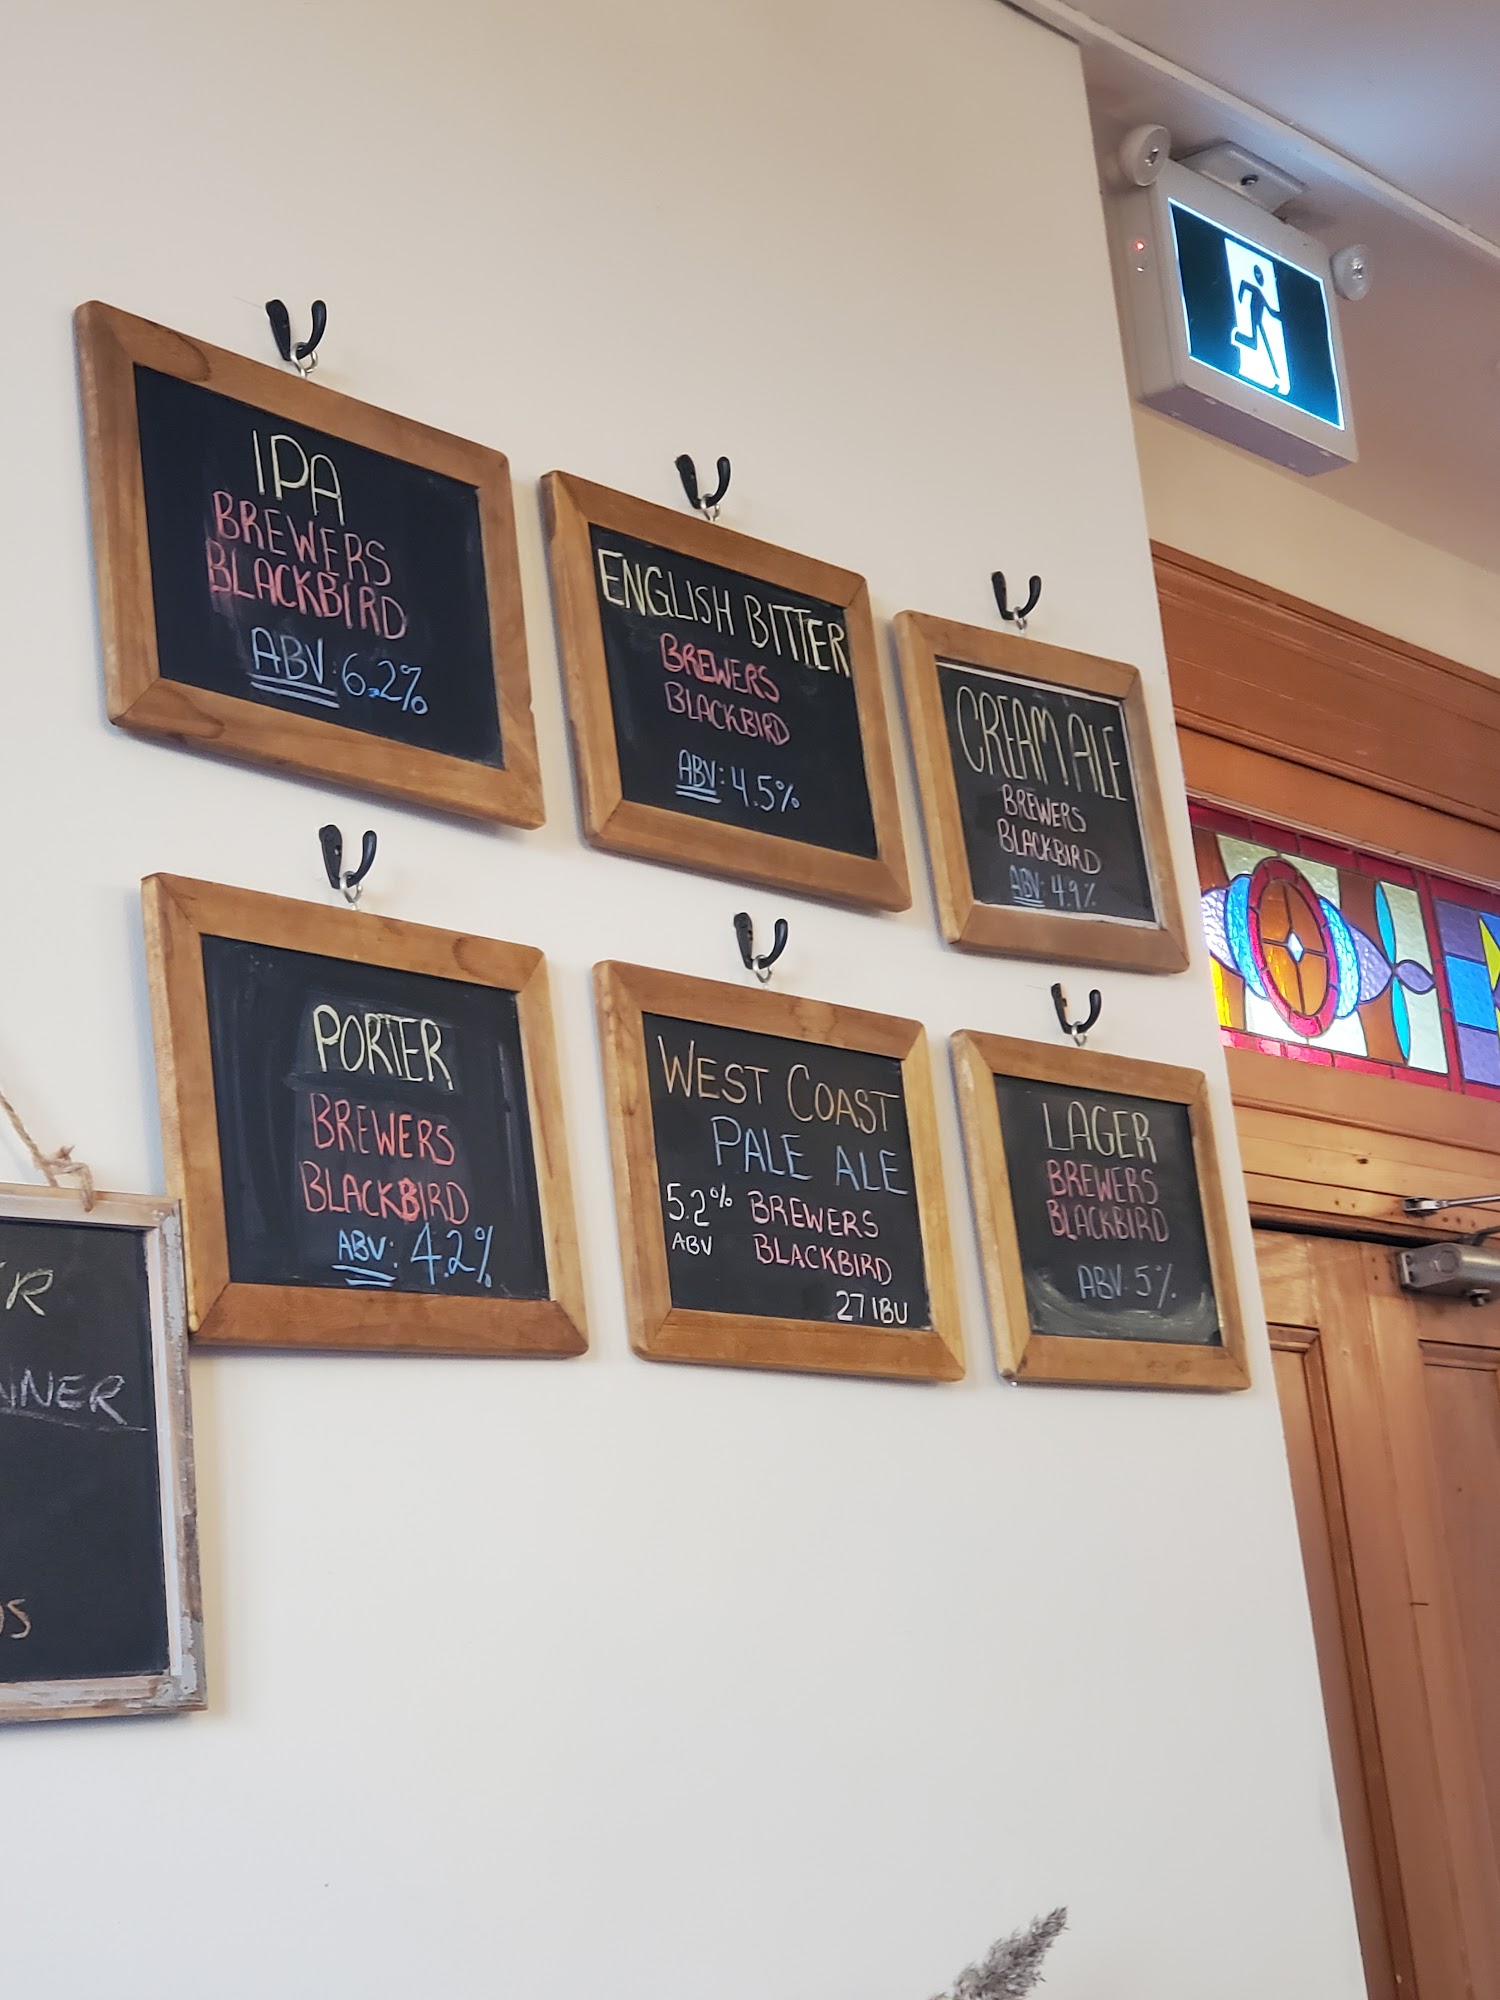 IPA
BREWERS
BLACKBIRD
ABV: 6.2%
ENGLISH BITTER
BREWERS
BLACKBIRD
ABV: 4.5%
CREAM ALE
BREWERS
BLACKBIRD
ABV: 4.9%
PORTER
BREWERS
BLACKBIRD
ABV: 4.2%
WEST COAST
PALE ALE
5.2% BREWERS
ABV BLACKBIRD
27 IBU
LAGER
BREWERS
BLACKBIRD
ABV: 5%